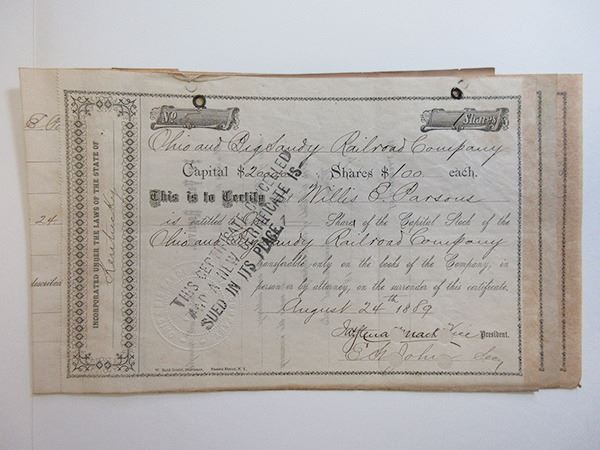 No
1
Shares
Ohio and Big Sandy Railroad Company
Capital $ Shares $100 each.
This is to Certify that Willis E. Parsons
is entitled to One Share of the Capital Stock of the
Ohio and Big Sandy Railroad Company
transferable only on the books of the Company, in
person or by attorney, on the surrender of this certificate.
August 24th 1889
Vice President.
E. F. John Secy
INCORPORATED UNDER THE LAWS OF THE STATE OF
Kentucky
THIS CERTIFICATE CANCELLED
AND A NEW CERTIFICATE IS-
SUED IN ITS PLACE.
24
described